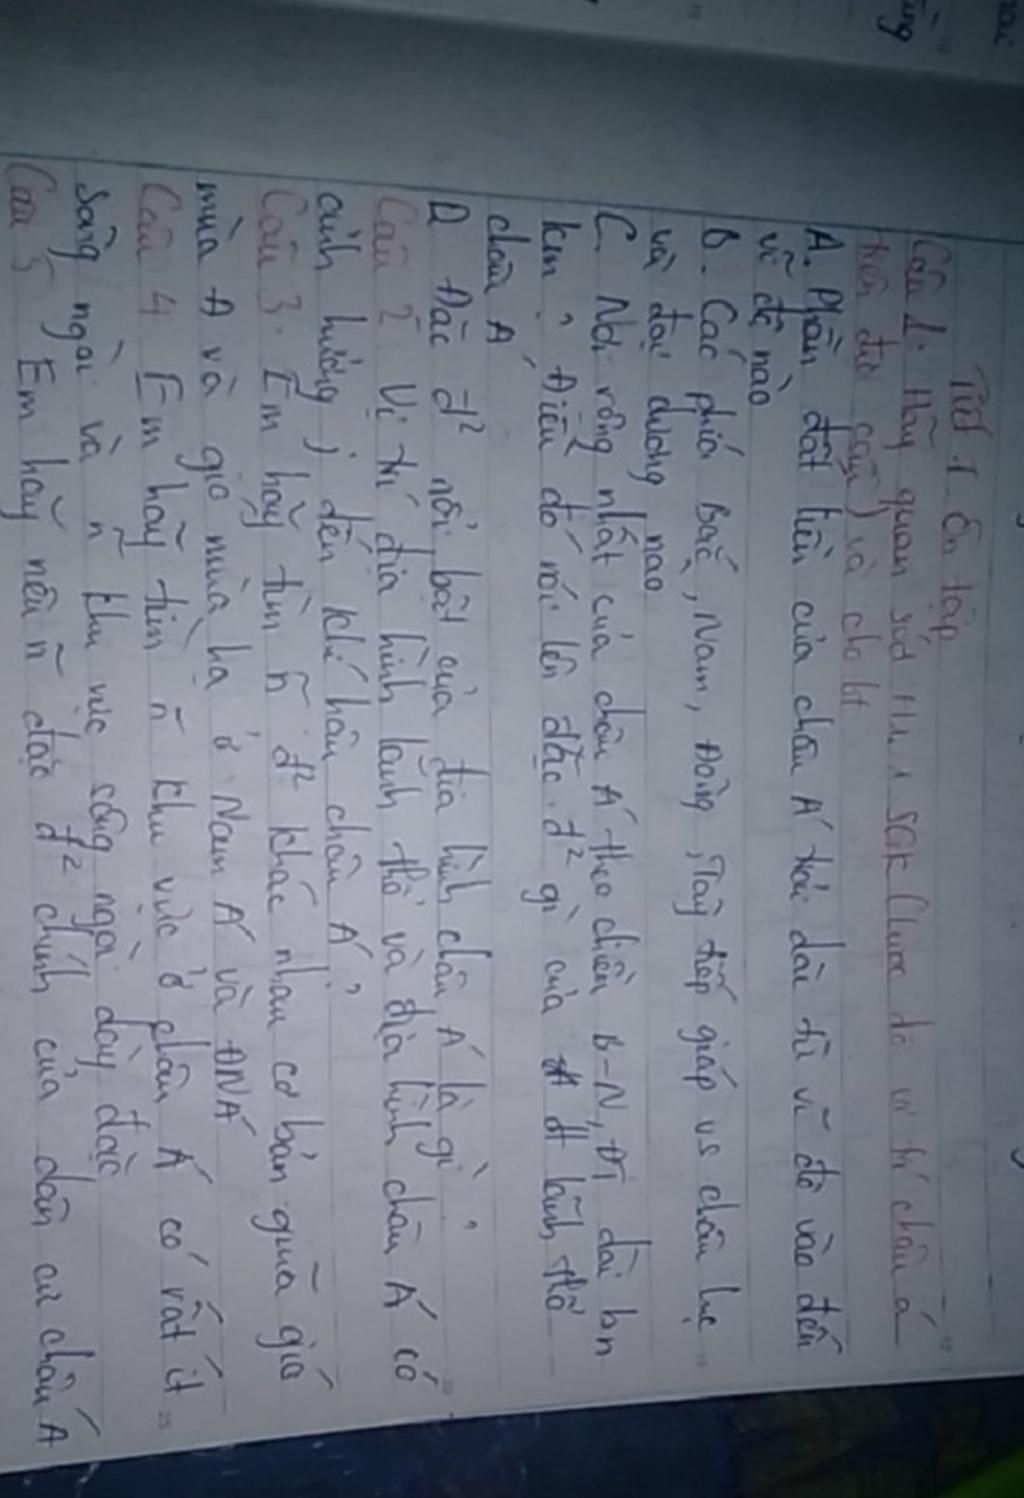 Tiết 1 ôn tập
Câu 1. Hãy quan sát H 1 SGK (lược đồ vị trí châu á
trên địa cầu) và cho bt
A. Phần đất liền của châu Á kéo dài từ vĩ độ nào đến
vĩ độ nào
B. Các phía Bắc, Nam, Đông, Tây tiếp giáp vs châu lục
và đại dương nào
C. Nơi rộng nhất của châu Á theo chiều B-N, ĐT dài bn
km? Điều đó nói lên đặc đ² gì của lãnh thổ
châu Á
D Đặc đ² nổi bật của địa hình châu Á là gì?
Câu 2. Vị trí địa hình lãnh thổ và địa hình châu Á có
ảnh hưởng j đến khí hậu châu Á?
Câu 3. Em hãy tìn ñ đ² khác nhau cơ bản giữa gió
mùa Đ và gió mùa hạ ở Nam Á và ĐNÁ
Câu 4 Em hãy tìn ñ khu vực ở châu Á có rất ít
sông ngòi và ñ khu vực sông ngòi dày đặc
Câu 5 Em hãy nêu ñ đặc đ² chính của dân cư châu Á